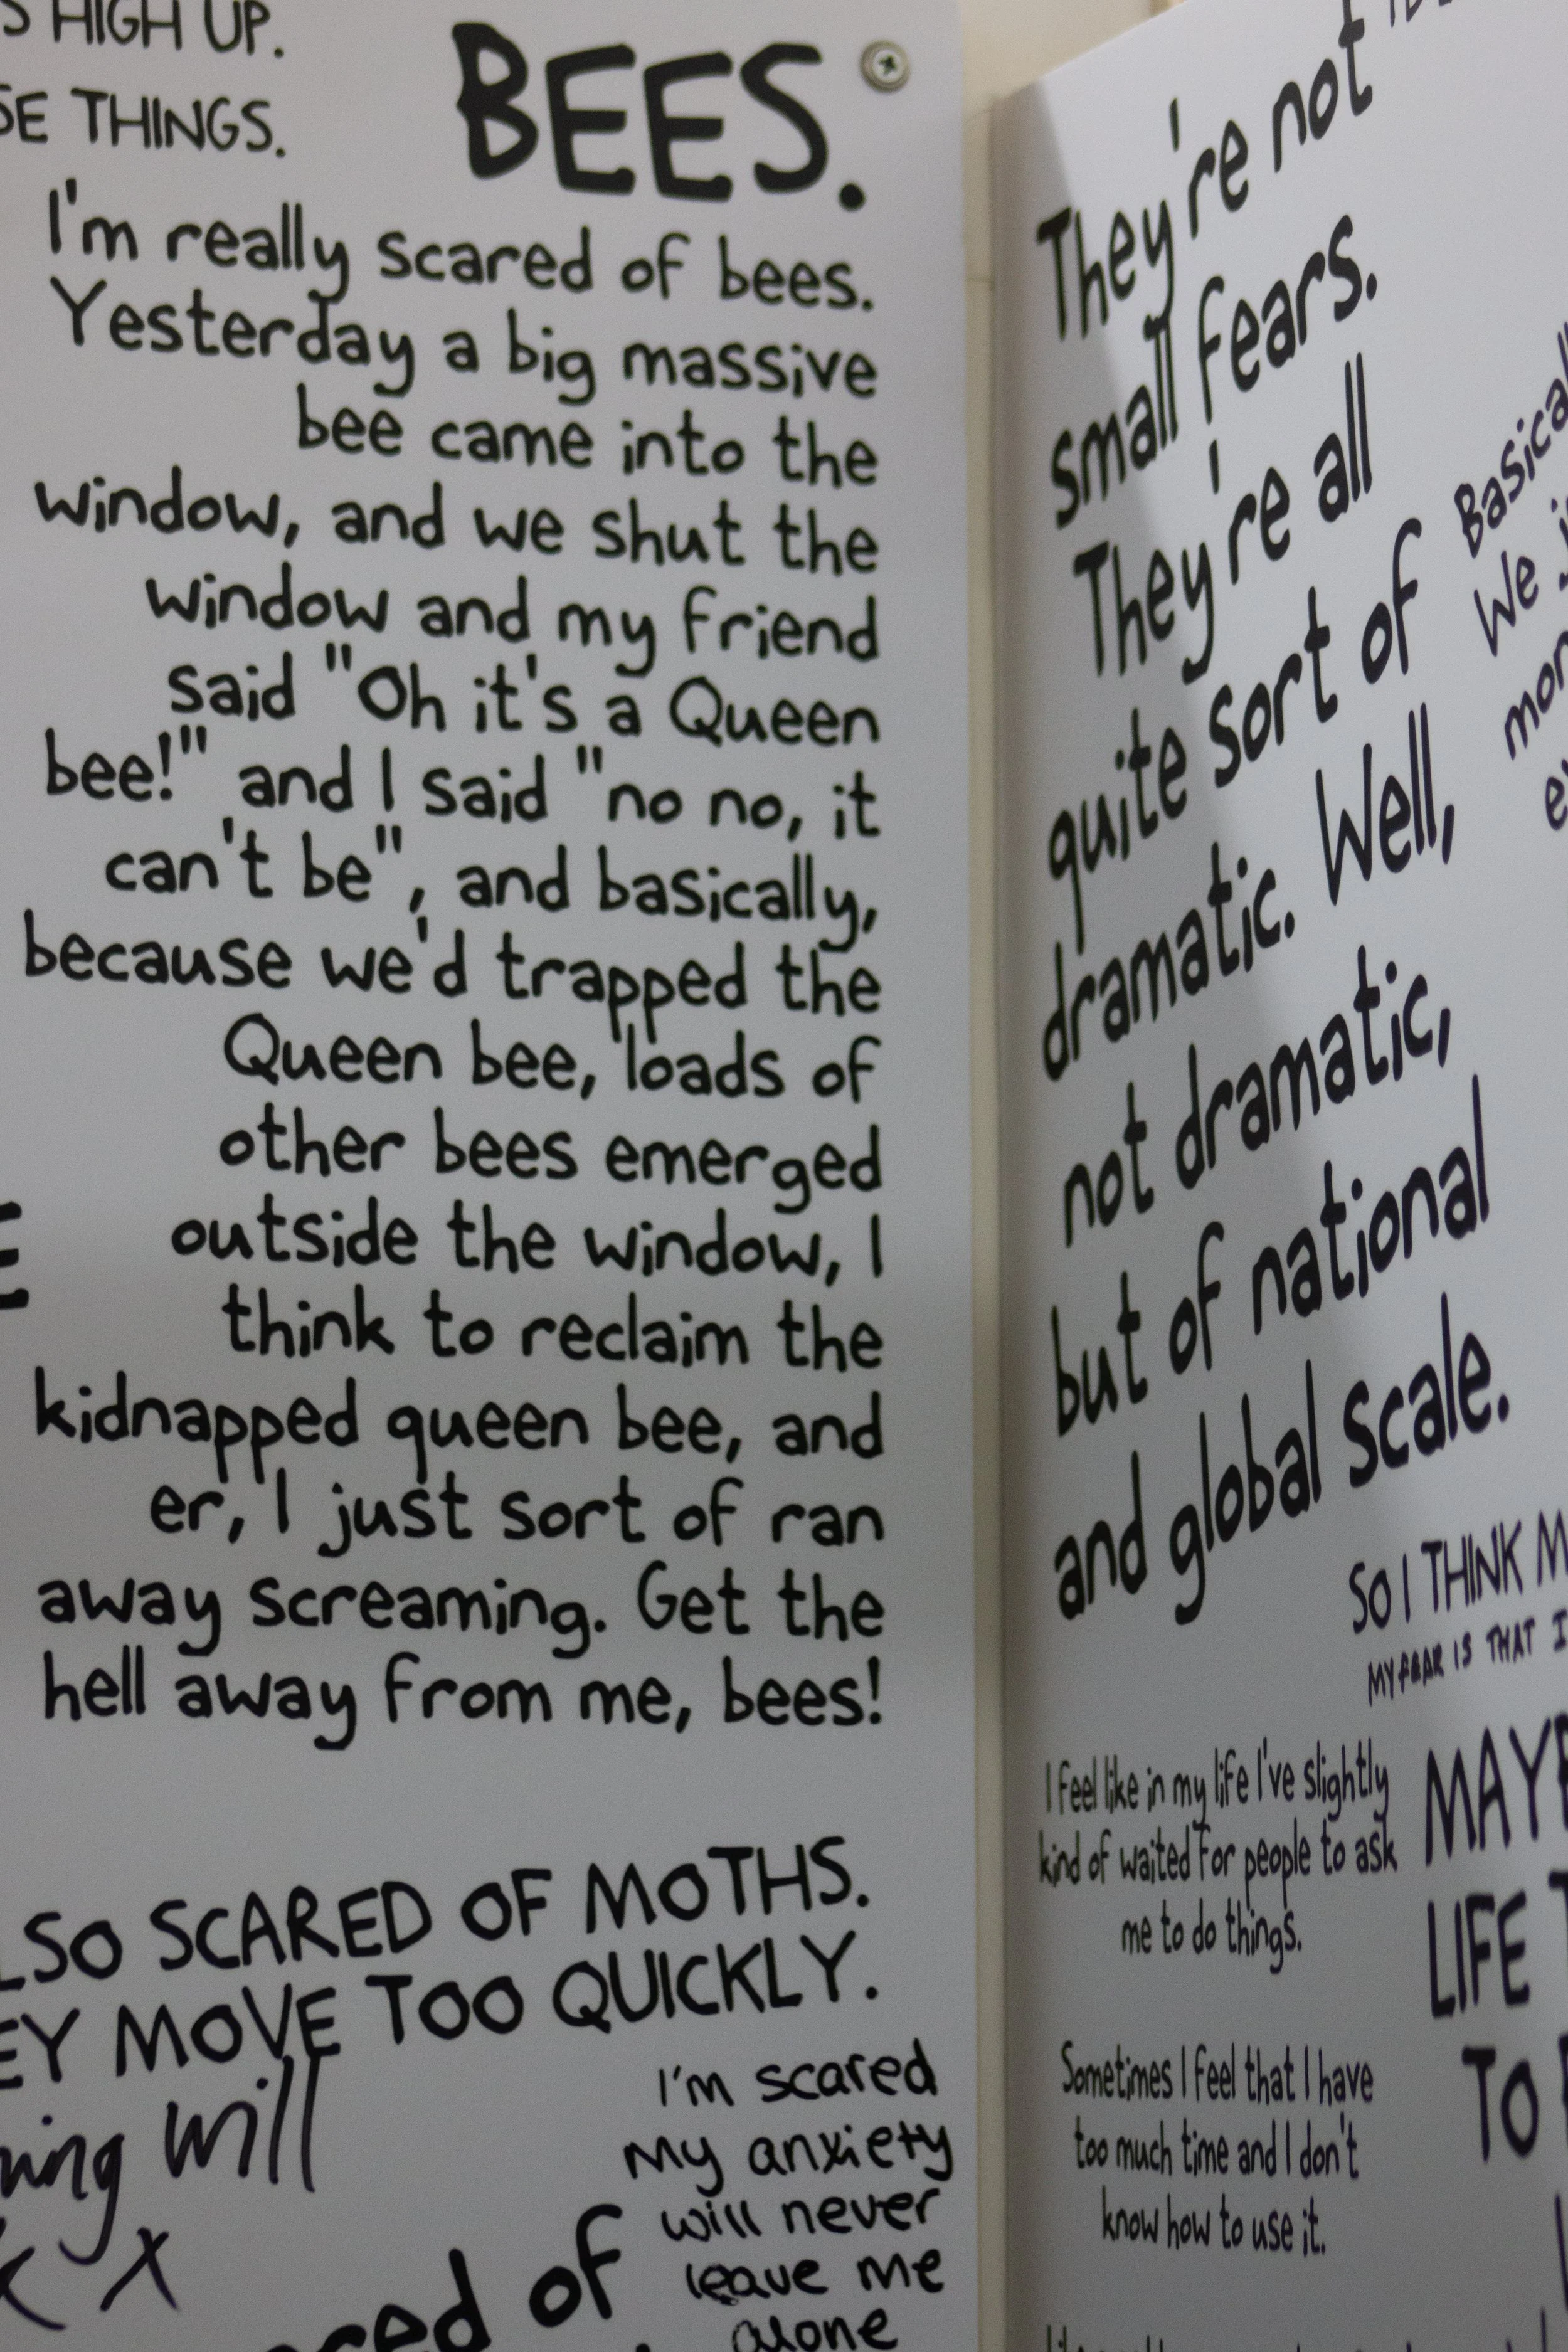 HIGH UP.
THINGS.
BEES.
I'm really scared of bees.
Yesterday a big massive
bee came into the
window, and we shut the
window and my friend
said "Oh it's a Queen
bee!" and I said "no no, it
can't be", and basically,
because we'd trapped the
Queen bee, loads of
other bees emerged
outside the window, I
think to reclaim the
kidnapped queen bee, and
er, I just sort of ran
away screaming. Get the
hell away from me, bees!
SCARED OF MOTHS.
MOVE TOO QUICKLY.
will
x
I'm scared
my anxiety
will never
leave me
alone
of
They're not
small fears.
They're all
quite sort of
dramatic. Well,
not dramatic,
but of national
and global scale.
We
SO I THINK
MY FEAR IS THAT I
I feel like in my life I've slightly
kind of waited for people to ask
me to do things.
LIFE
TO
Sometimes I feel that I have
too much time and I don't
know how to use it.